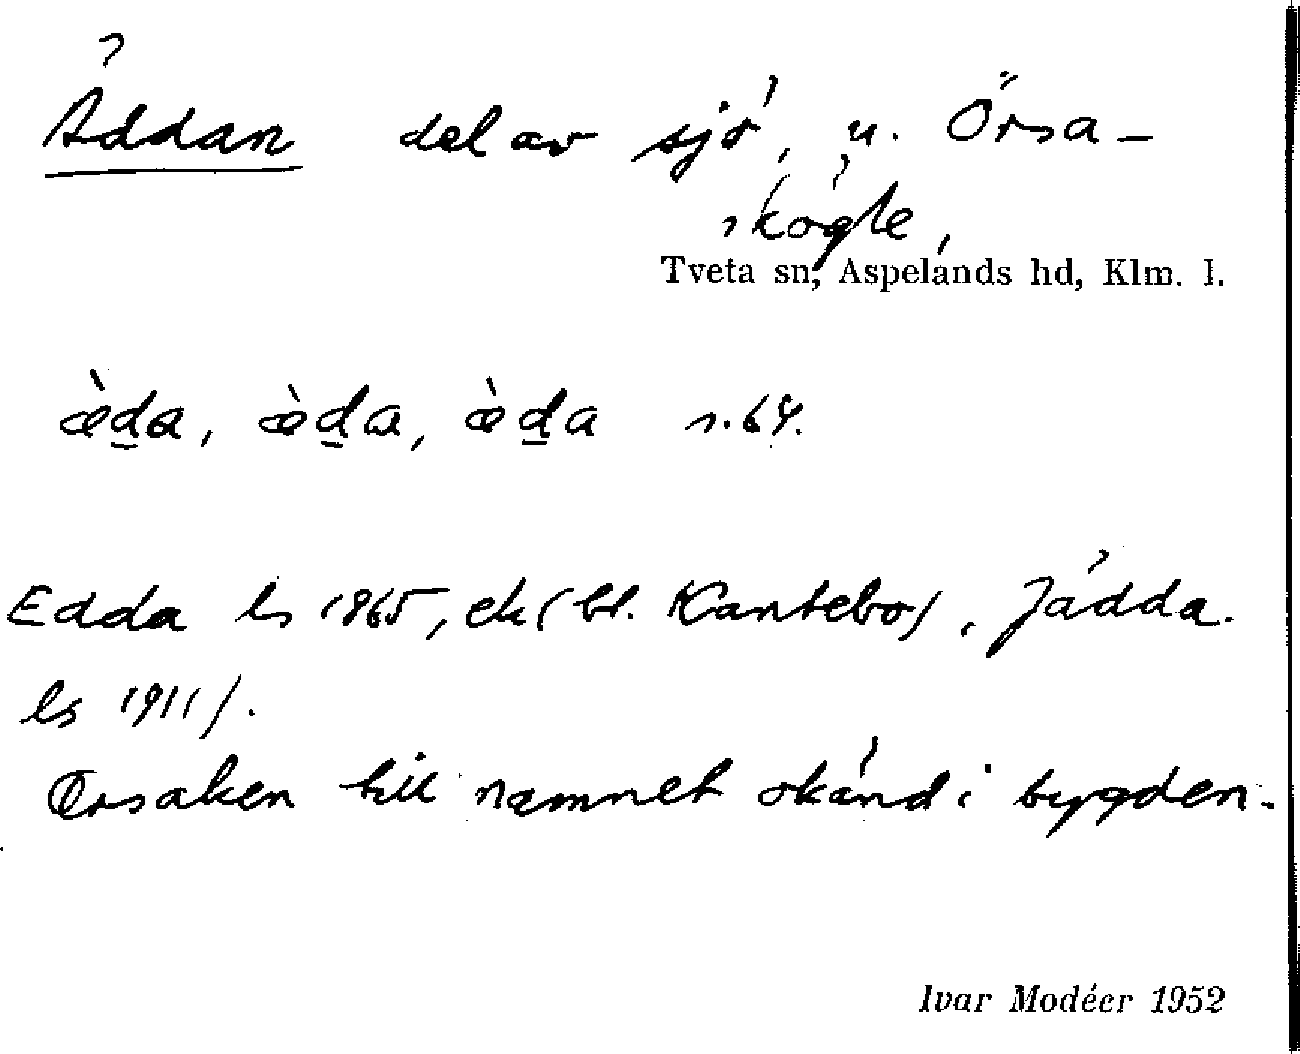 Äddan del av sjö, u. Örsa-
skögle,
Tveta sn, Aspelands hd, Klm. l.
æ̀d̲a, æ̀d̲a, æ̀d̲a s.64.
Edda ls 1865, ek (bl. Kantebo), Jädda.
ls 1911/.
Orsaken till namnet okänd i bygden.
Ivar Modéer 1952